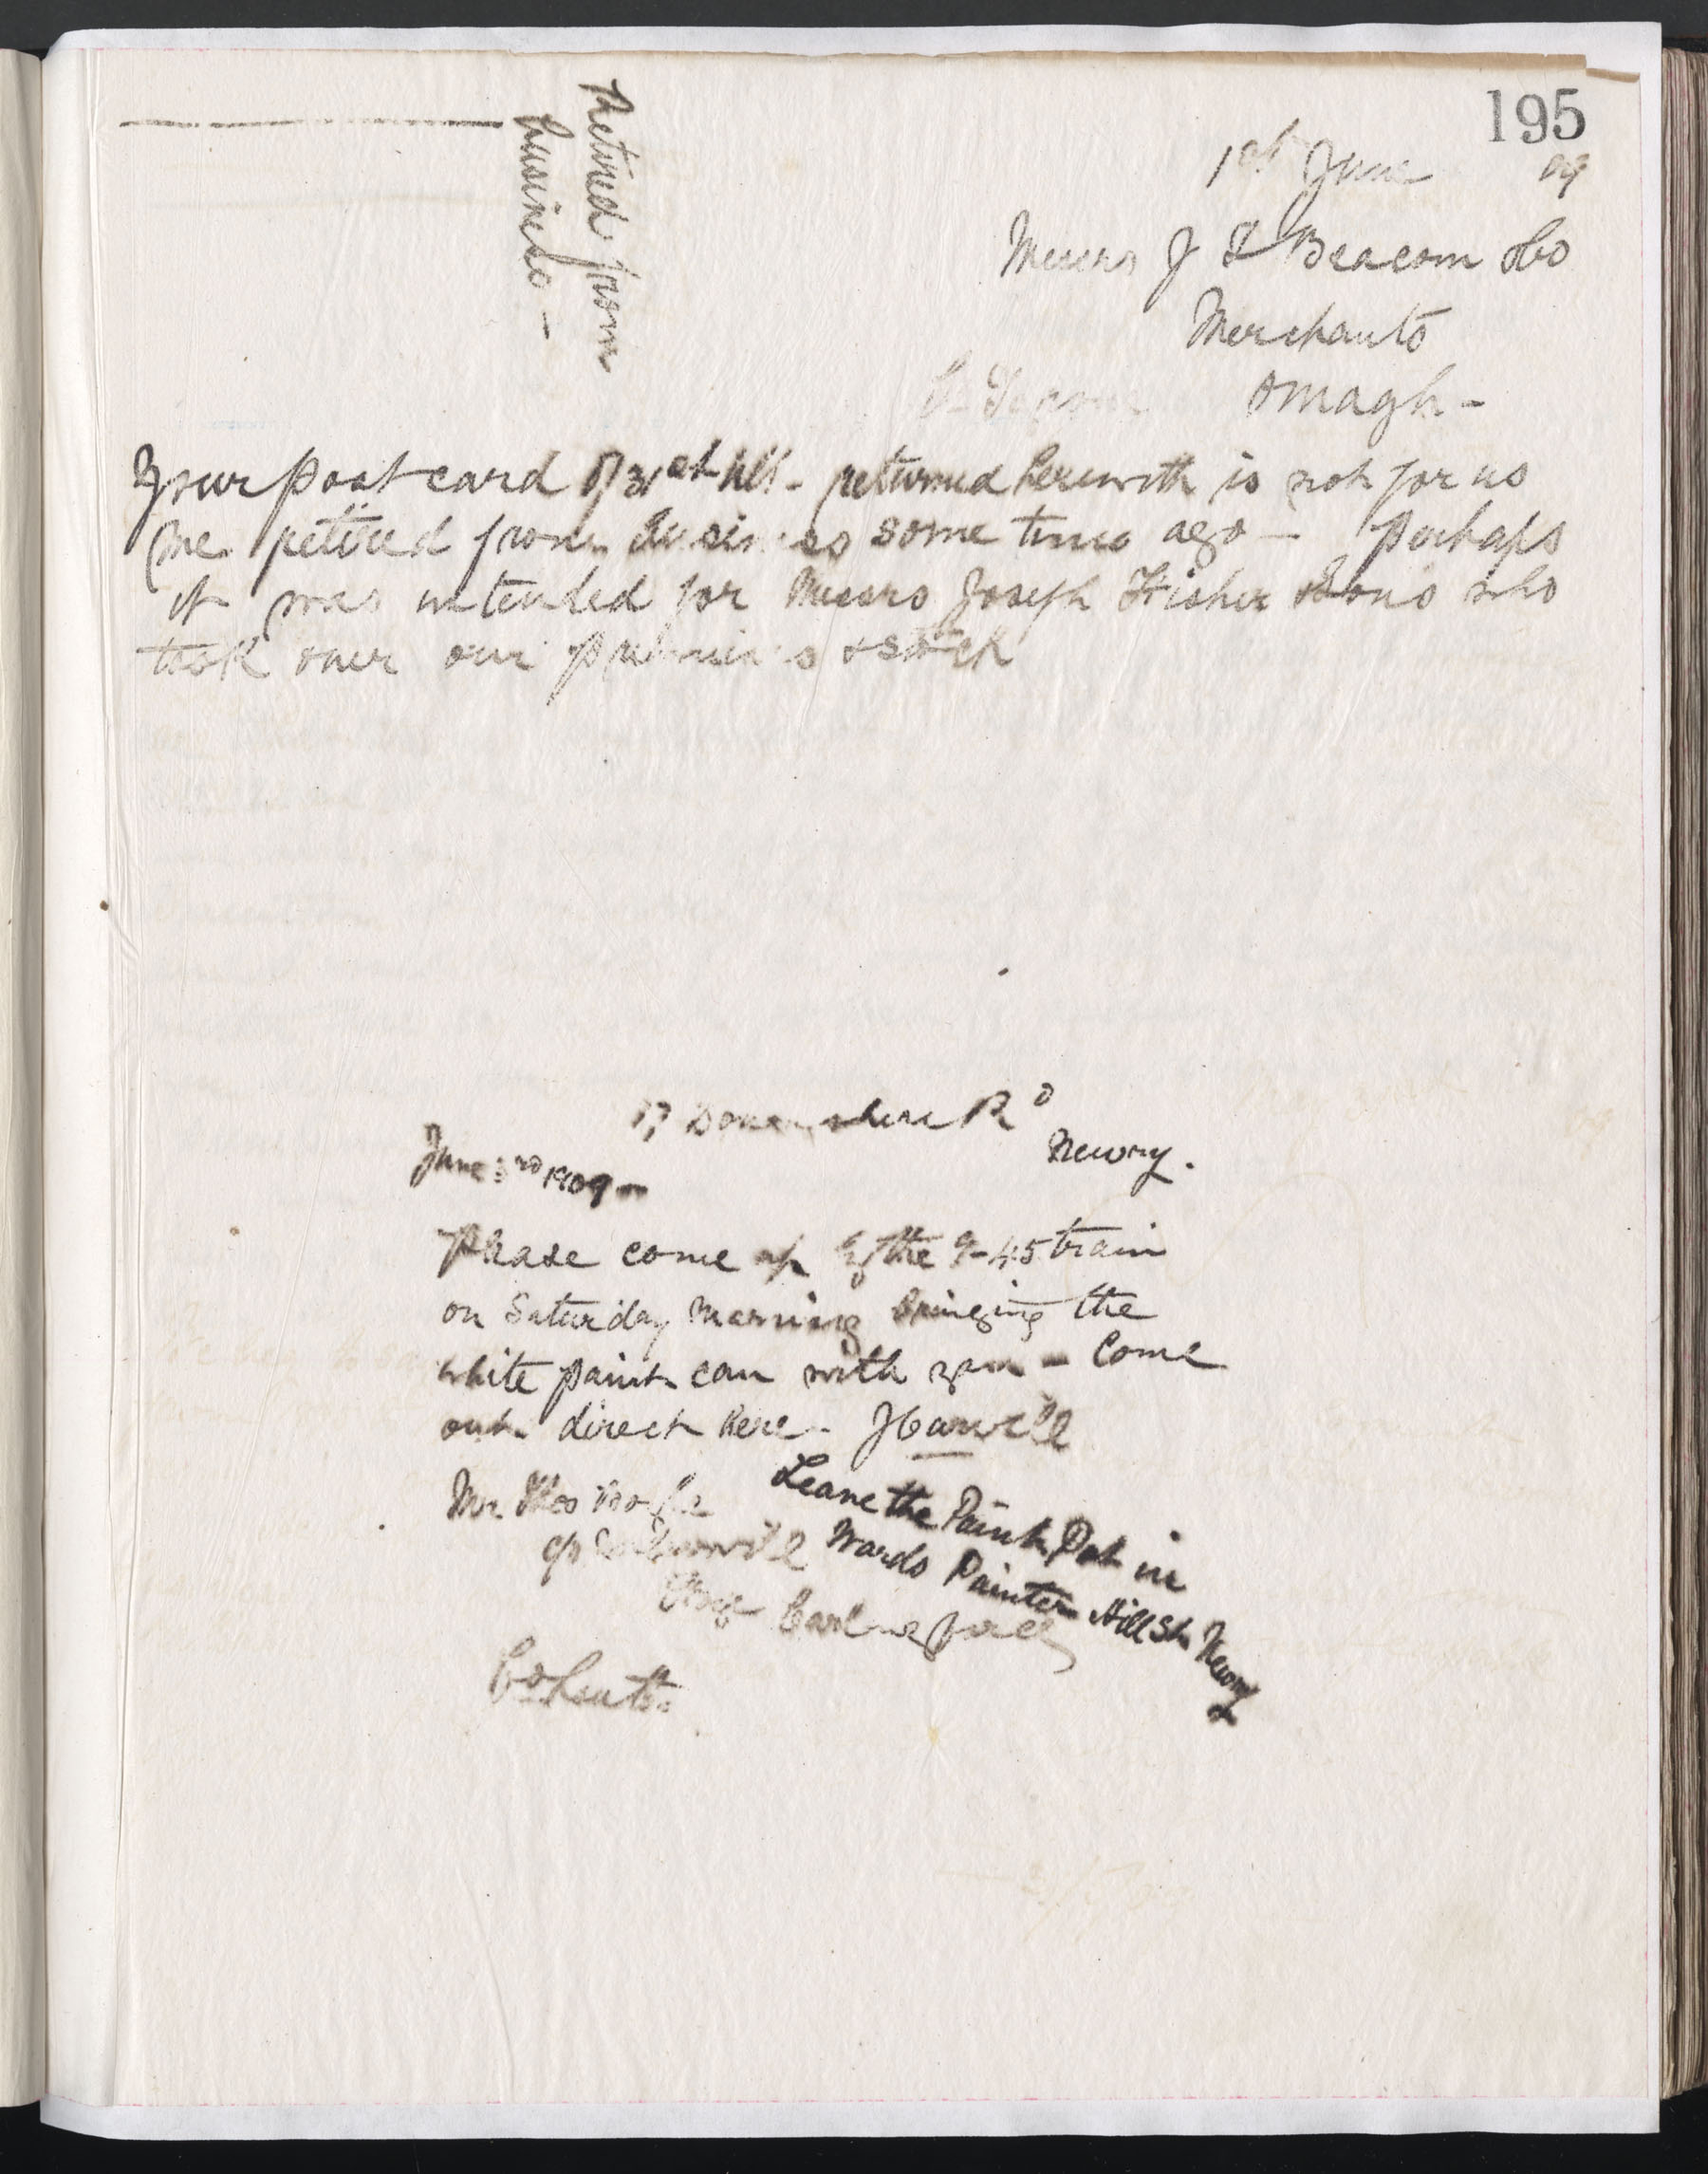 195
Retired from
business -
1st June 09
Messrs J Beacom & Co
Merchants
Omagh -
Your post card of 31st ult - returned herewith is not for us
We retired from business some time ago - Perhaps
it was intended for Messrs Joseph Fisher & Sons who
took over our premises & stock
17 Downshire Rd
Newry.
June 3rd 1909 -
Please come up by the 9-45 train
on Saturday morning bringing the
white paint can with you - Come
out direct here - J Carvill
Mr Thos Boyle
Leave the Paint Pot in
Wards Painter Hill St Newry
c/o
Carlingford
Co Louth.